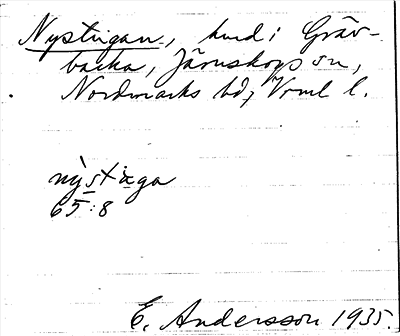 Nystugan, hmd i Gräv-
backa, Järnskogs sn,
Nordmarks hd, Vrml l.
nỳstæga
65:8
E. Andersson 1935.